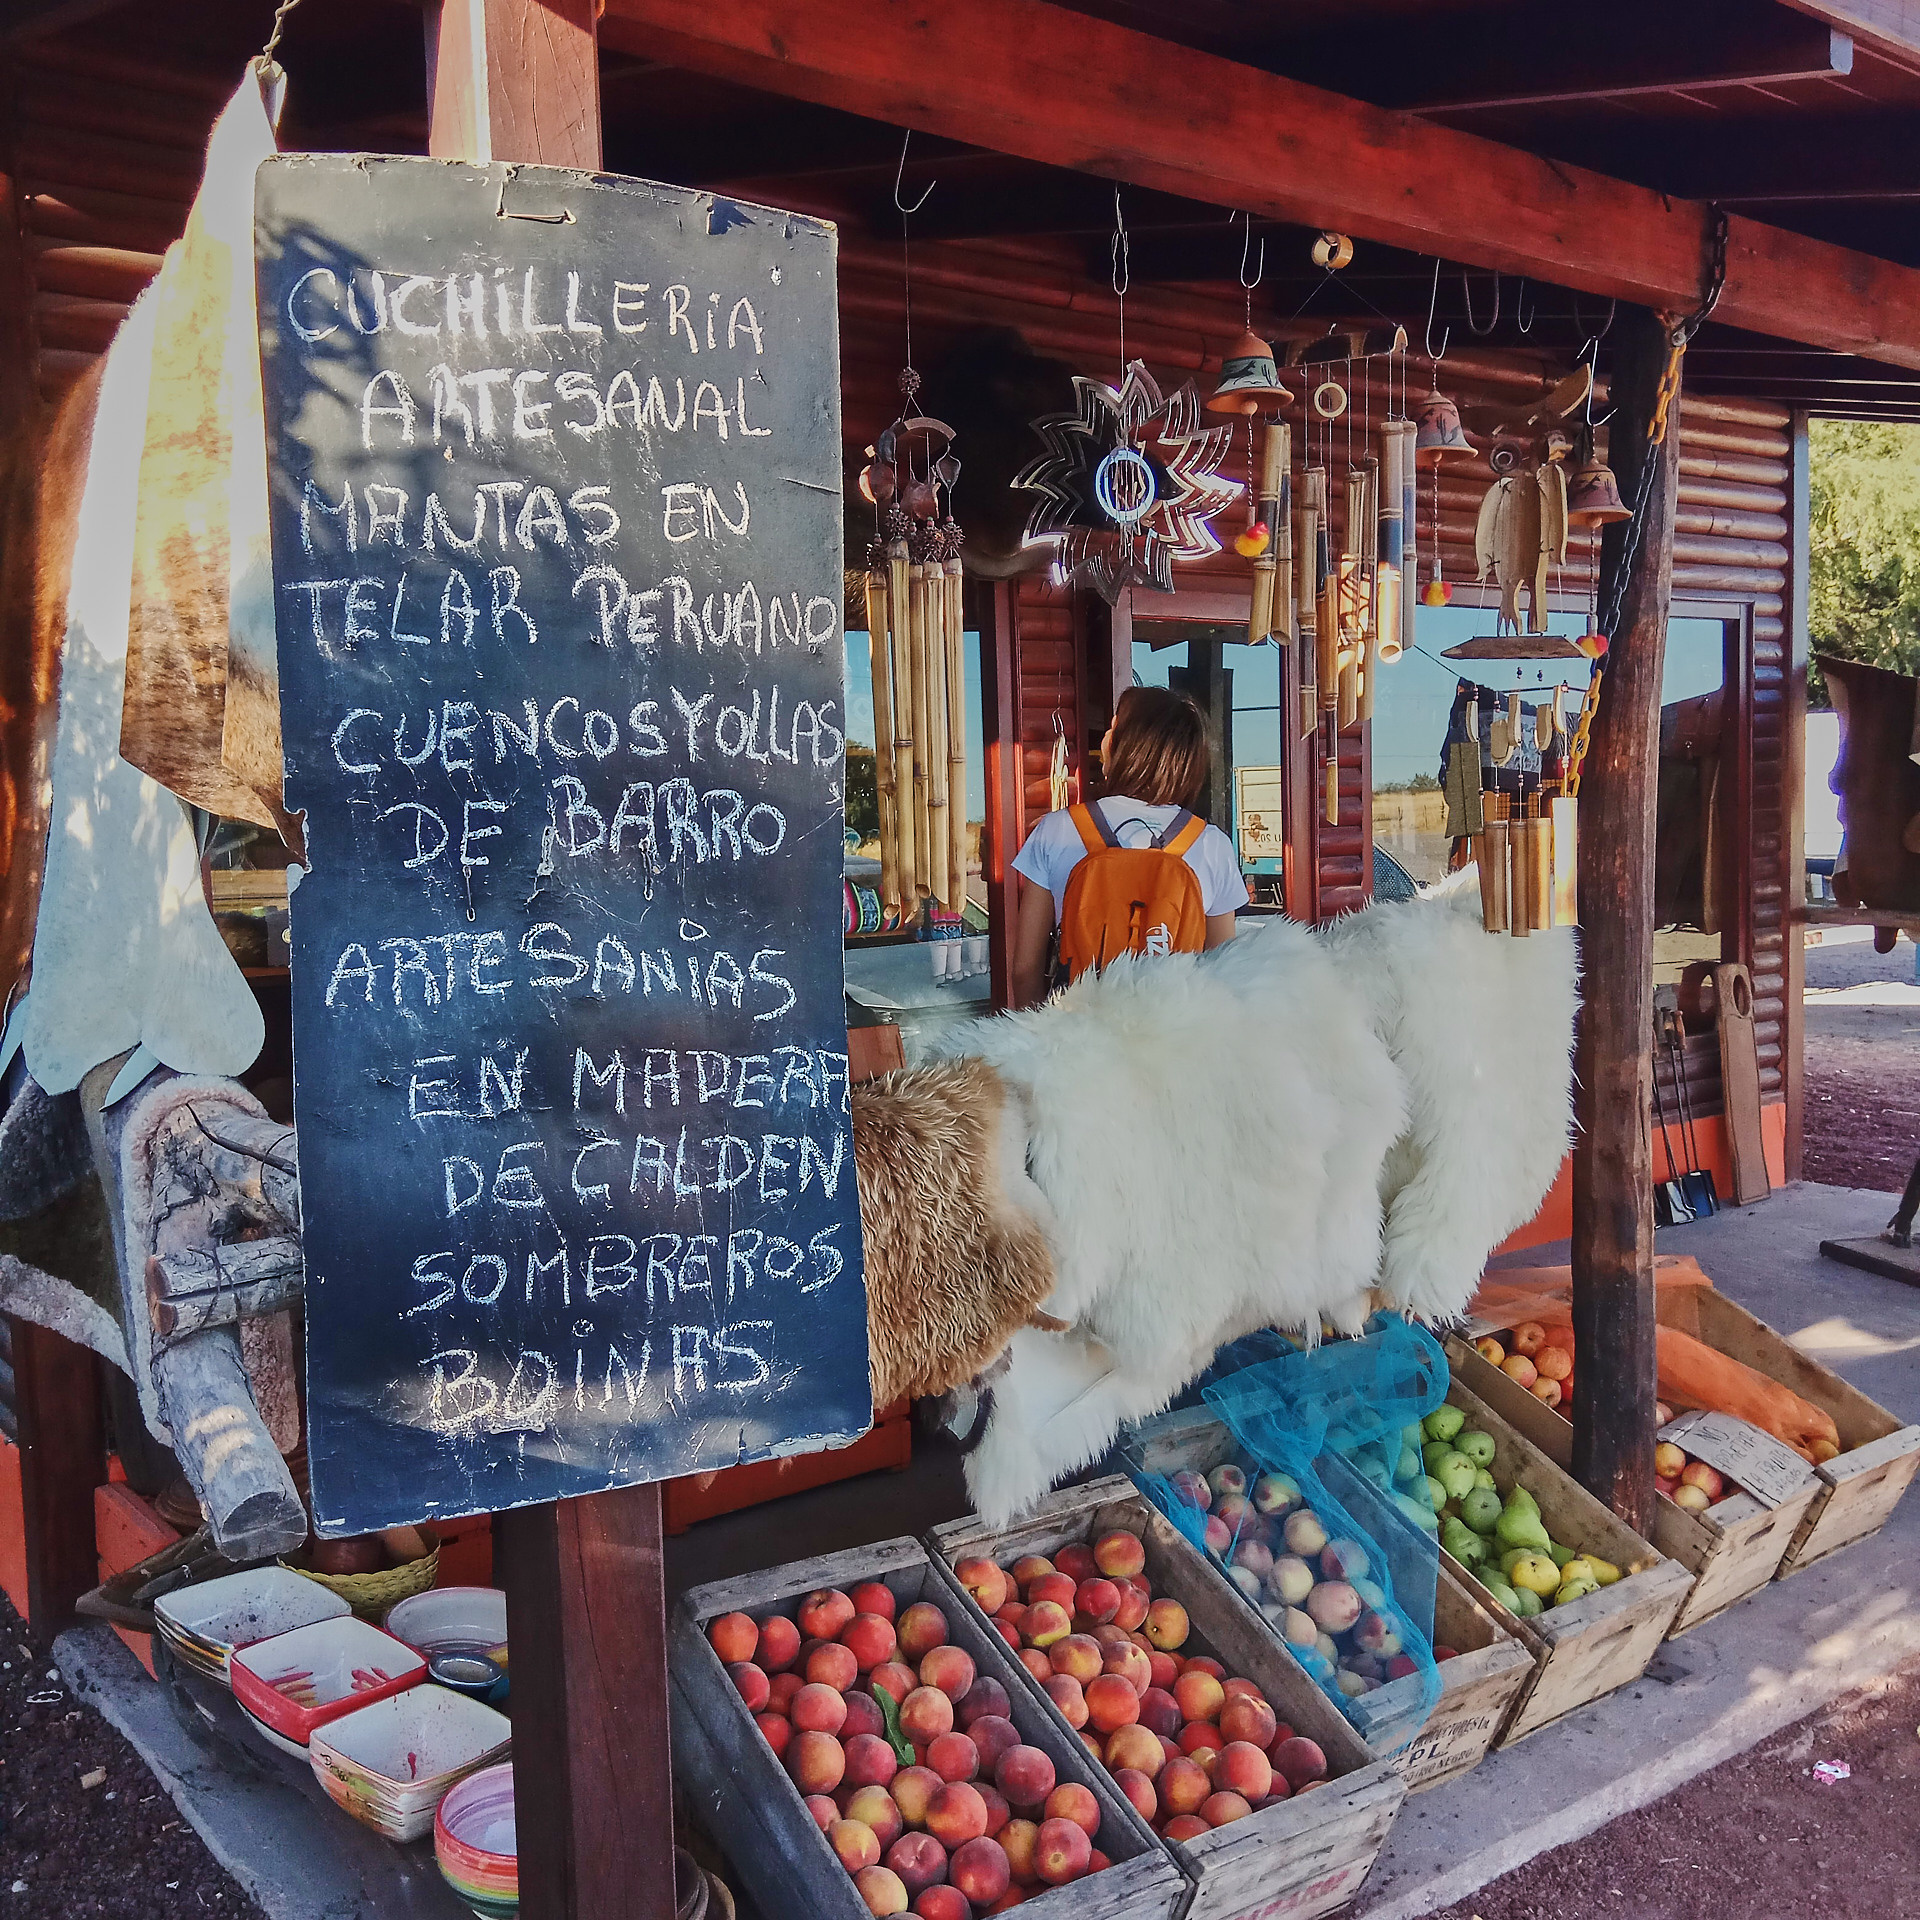 CUCHiLLERiA
ARTESANAL
MANTAS EN
TELAR PERUANO
CUENCOS Y OLLAS
DE BARRO
ARTESANiAS
EN MADERA
DE CALDEN
SOMBREROS
BOiNAS
NO
APRETAR
LA FRUTA